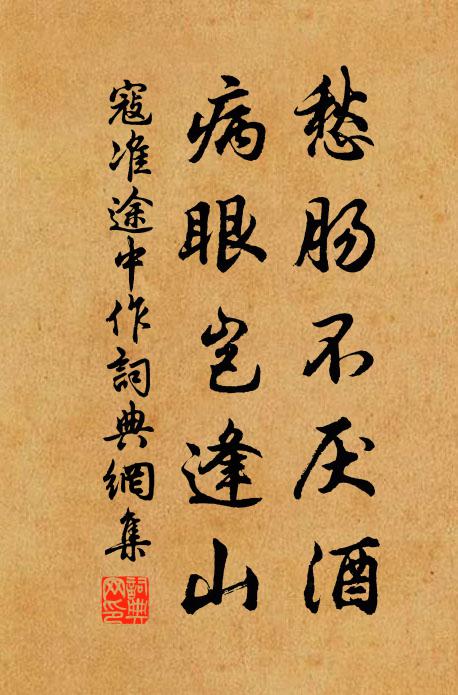 愁肠不厌酒
病眼岂逢山
寇准途中作詞典網集
詞典网印